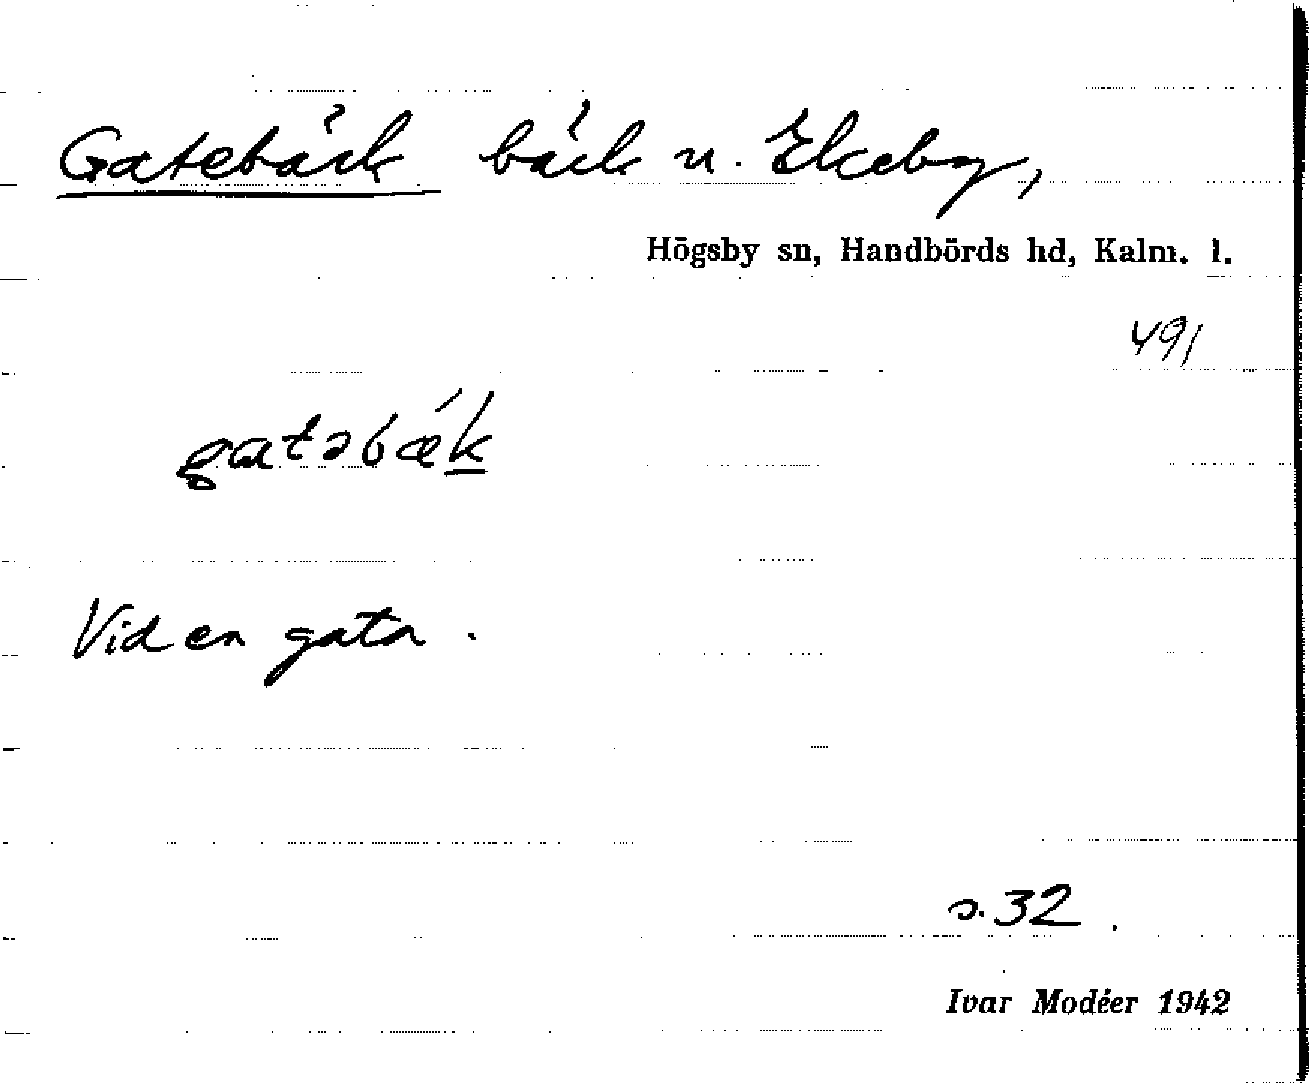 Gatebäck bäck u. Ekeby,
Högsby sn, Handbörds hd, Kalm. l.
491
gatəbǽk
Vid en gata.
s. 32.
Ivar Modéer 1942